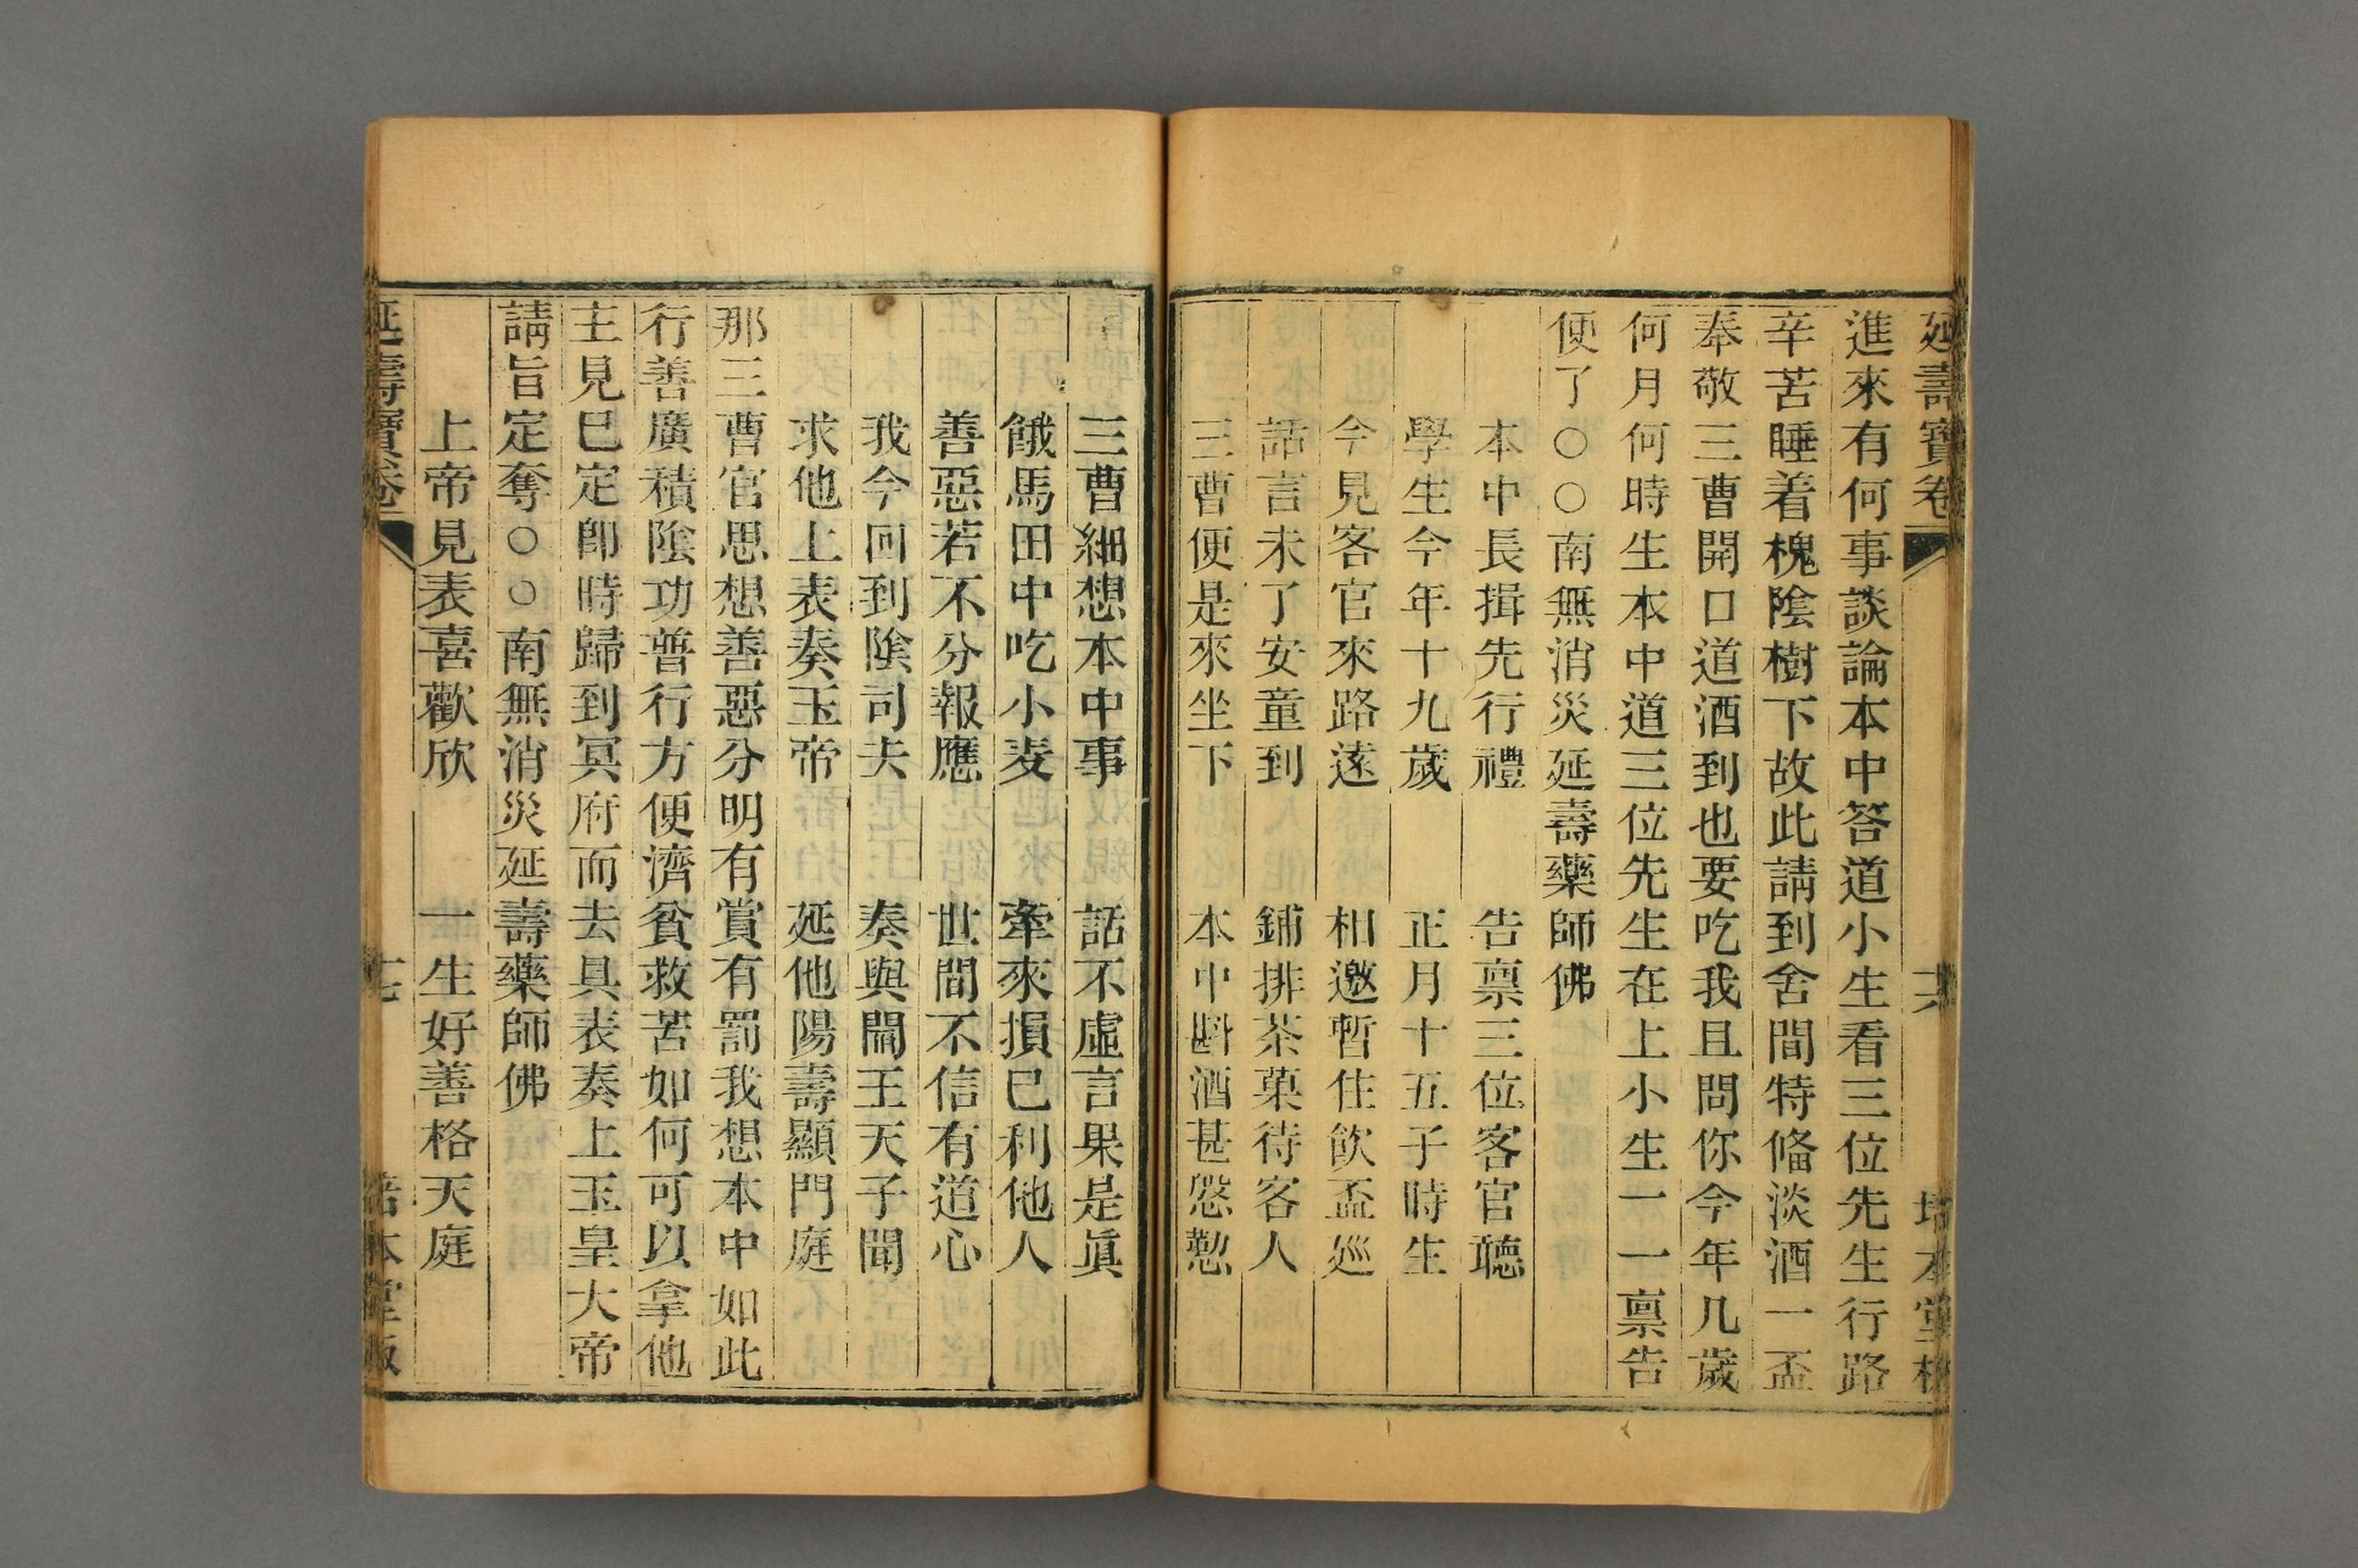 延壽寶卷 十六 培本堂板
進來有何事談論本中答道小生看三位先生行路
辛苦睡着槐陰樹下故此請到舍間特俻淡酒一盃
奉敬三曹開口道酒到也要吃我且問你今年几歲
何月何時生本中道三位先生在上小生一一禀告
便了○○南無消災延壽藥師佛
本中長揖先行禮 告禀三位客官聴
學生今年十九歲 正月十五子時生
今見客官來路遠 相邀暫住飲盃廵
話言未了安童到 鋪排茶菓待客人
三曹便是來坐下 本中斟酒甚慇懃
三曹細想本中事 話不虛言果是眞
餓馬田中吃小麦 牽來損已利他人
善惡若不分報應 世間不信有道心
我今回到陰司去 奏與閻王天子聞
求他上表奏玉帝 延他陽壽顯門庭
那三曹官思想善惡分明有賞有罰我想本中如此
行善廣積陰功普行方便濟貧救苦如何可以拿他
主見已定卽時歸到冥府而去具表奏上玉皇大帝
請旨定奪○○南無消災延壽藥師佛
上帝見表喜歡欣 一生好善格天庭
延壽寶卷 十七 培本堂板